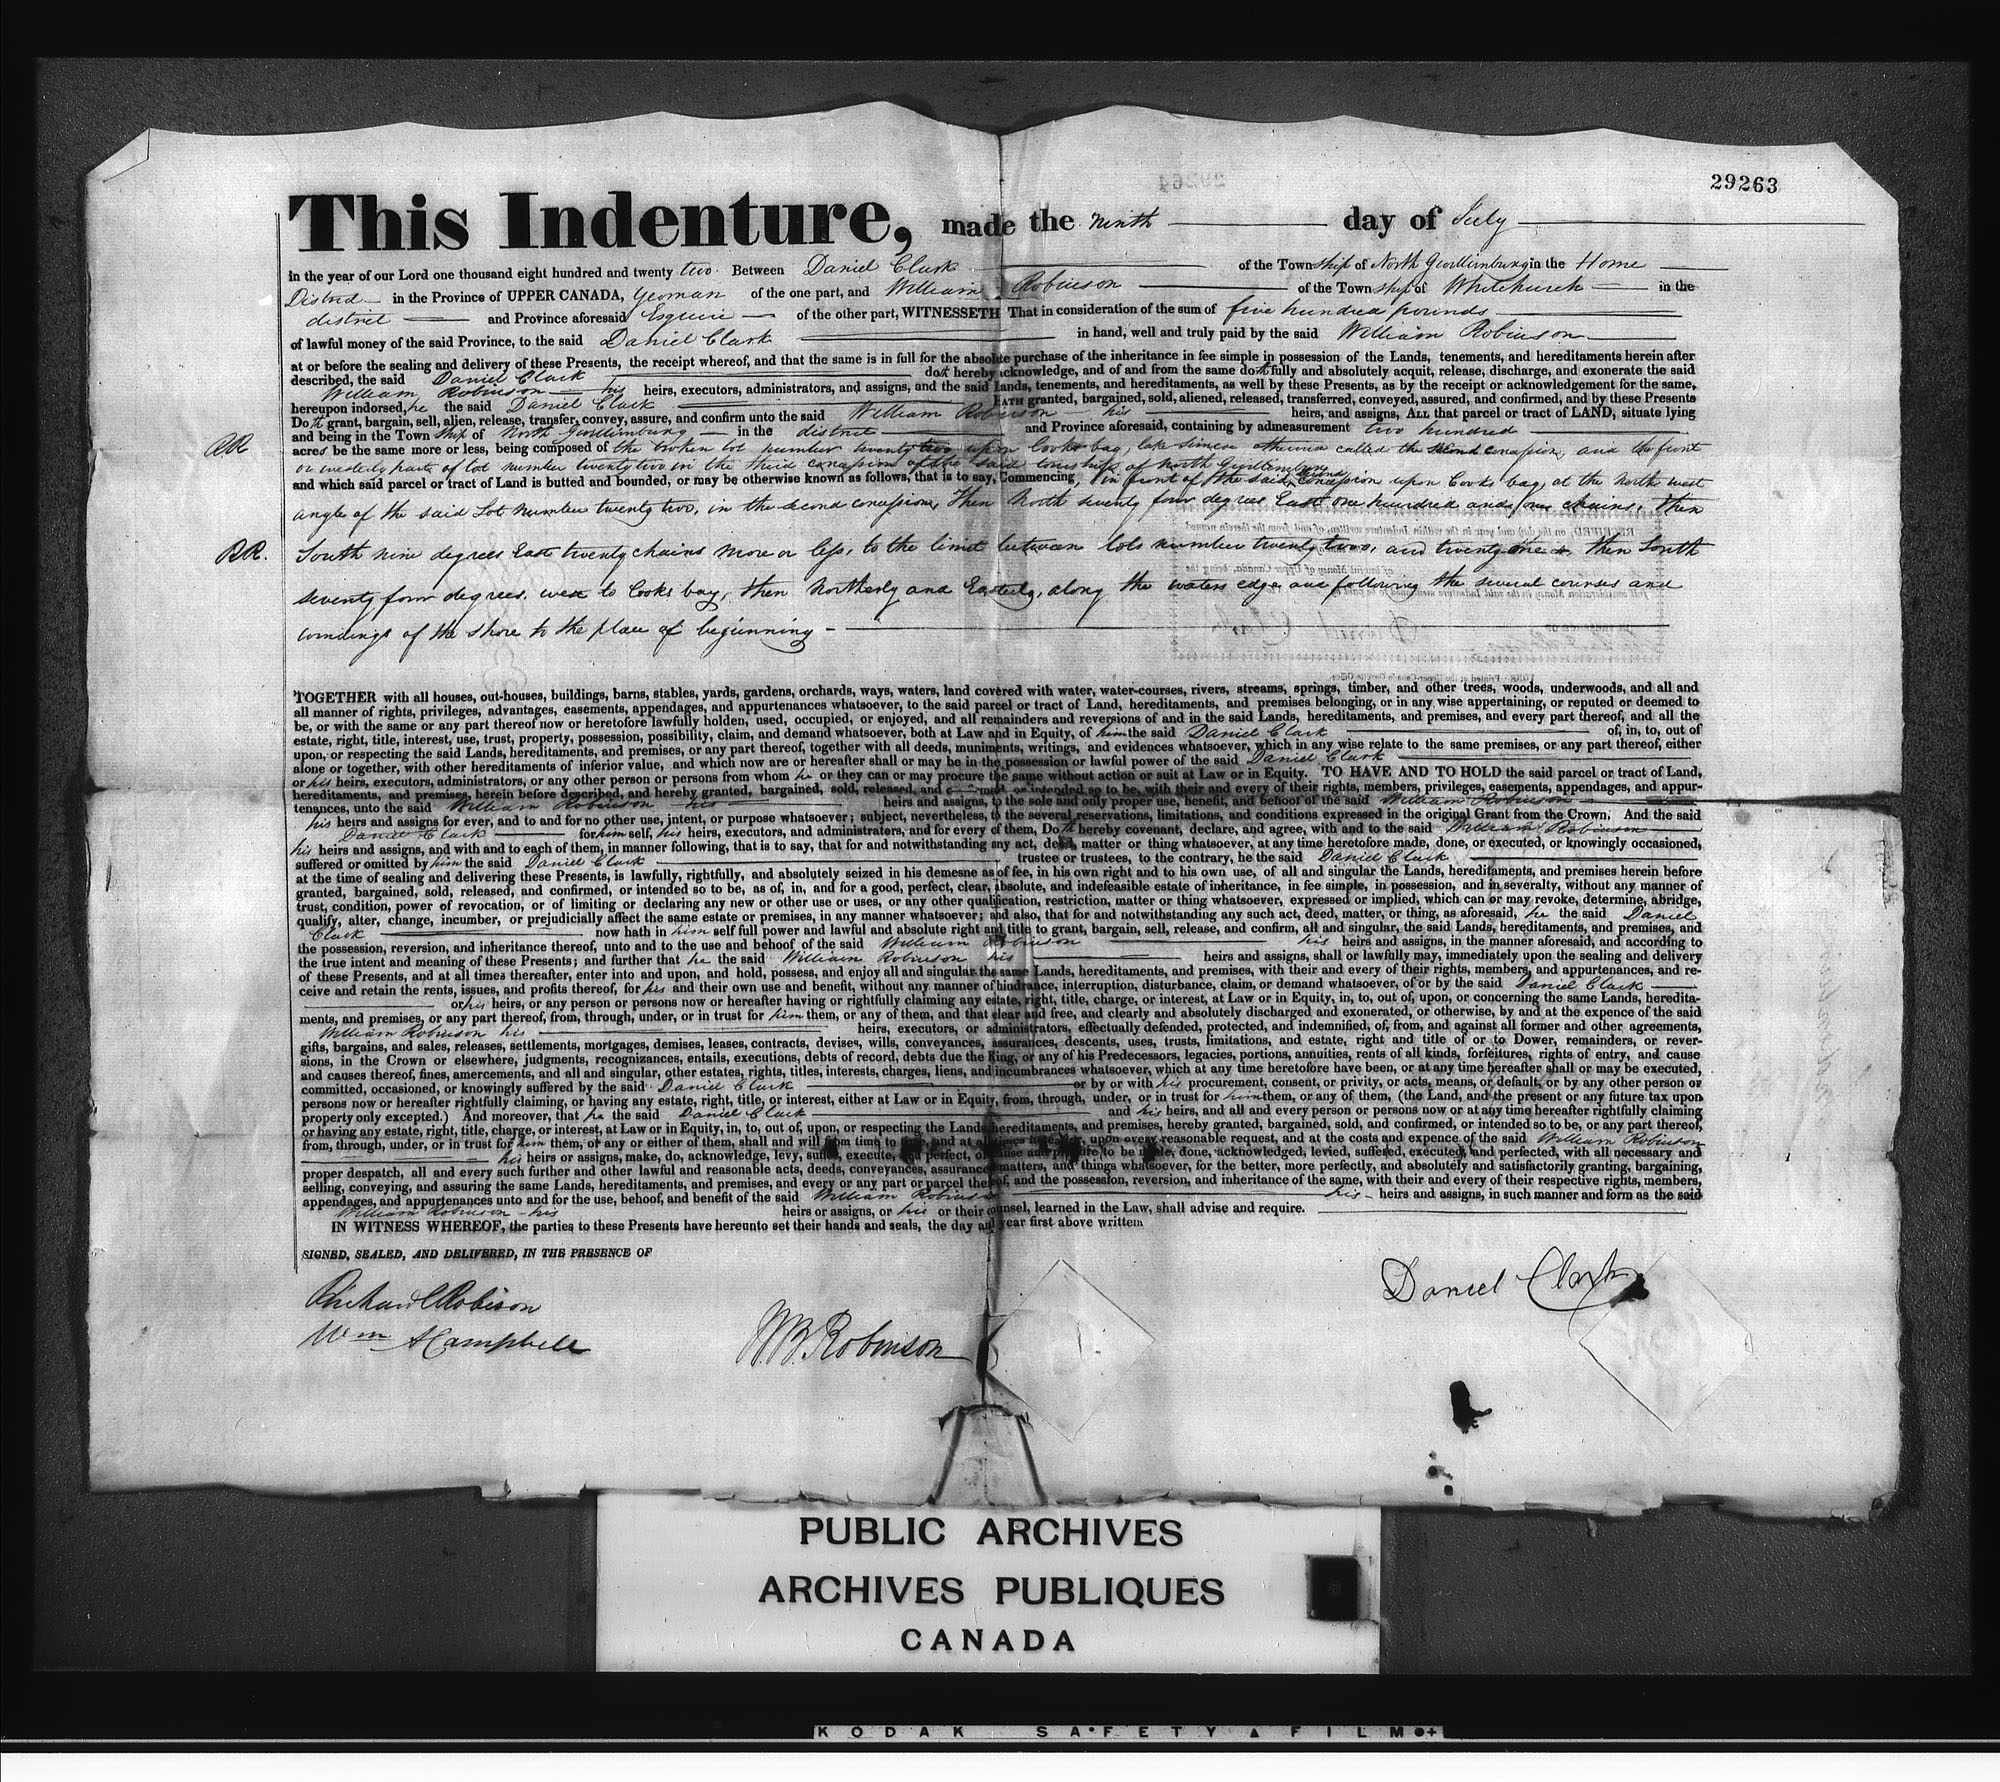 29263
This Indenture, made the ninth day of July
in the year of our Lord one thousand eight hundred and twenty two Between Daniel Clark of the Township of North Gwillimburg in the Home
District in the Province of UPPER CANADA, Yeoman of the one part, and William Robinson of the Township of Whitchurch in the
district and Province aforesaid Esquire of the other part, WITNESSETH That in consideration of the sum of five hundred pounds
of lawful money of the said Province, to the said Daniel Clark in hand, well and truly paid by the said William Robinson
at or before the sealing and delivery of these Presents, the receipt whereof, and that the same is in full for the absolute purchase of the inheritance in fee simple in possession of the Lands, tenements, and hereditaments herein after
described, the said Daniel Clark doth hereby acknowledge, and of and from the same doth fully and absolutely acquit, release, discharge, and exonerate the said
William Robinson his heirs, executors, administrators, and assigns, and the said Lands, tenements, and hereditaments, as well by these Presents, as by the receipt or acknowledgement for the same,
hereupon indorsed, he the said Daniel Clark HATH granted, bargained, sold, aliened, released, transferred, conveyed, assured, and confirmed, and by these Presents
Doth grant, bargain, sell, alien, release, transfer, convey, assure, and confirm unto the said William Robinson his heirs, and assigns, ALL that parcel or tract of LAND, situate lying
and being in the Township of North Gwillimburg in the district and Province aforesaid, containing by admeasurement two hundred
RR acres be the same more or less, being composed of the broken lot number twenty two upon Cooks bay, lake Simcoe otherwise called the second concession, and the front
or westerly part of lot number twenty two in the third concession of the said township of North Gwillimburg
and which said parcel or tract of Land is butted and bounded, or may be otherwise known as follows, that is to say, Commencing, in front of the said second concession upon Cooks bay, at the North west
angle of the said Lot number twenty two, in the second concession, Then North seventy four degrees East one hundred and one chains, then
RR. South nine degrees East twenty chains more or less, to the limit between lots number twenty two, and twenty one then South
seventy four degrees, west to Cooks bay, then Northerly and Easterly, along the waters edge and following the several courses and
windings of the shore to the place of beginning
TOGETHER with all houses, out-houses, buildings, barns, stables, yards, gardens, orchards, ways, waters, land covered with water, water-courses, rivers, streams, springs, timber, and other trees, woods, underwoods, and all and
all manner of rights, privileges, advantages, easements, appendages, and appurtenances whatsoever, to the said parcel or tract of Land, hereditaments, and premises belonging, or in any wise appertaining, or reputed or deemed to
be, or with the same or any part thereof now or heretofore lawfully holden, used, occupied, or enjoyed, and all remainders and reversions of and in the said Lands, hereditaments, and premises, and every part thereof, and all the
estate, right, title, interest, use, trust, property, possession, possibility, claim, and demand whatsoever, both at Law and in Equity, of him the said Daniel Clark of, in, to, out of
upon, or respecting the said Lands, hereditaments, and premises, or any part thereof, together with all deeds, muniments, writings, and evidences whatsoever, which in any wise relate to the same premises, or any part thereof, either
alone or together, with other hereditaments of inferior value, and which now are or hereafter shall or may be in the possession or lawful power of the said Daniel Clark
or his heirs, executors, administrators, or any other person or persons from whom he or they can or may procure the same without action or suit at Law or in Equity. TO HAVE AND TO HOLD the said parcel or tract of Land,
hereditaments, and premises, herein before described, and hereby granted, bargained, sold, released, and or intended so to be, with their and every of their rights, members, privileges, easements, appendages, and appur-
tenances, unto the said William Robinson his heirs and assigns, to the sole and only proper use, benefit, and behoof of the said William Robinson
his heirs and assigns for ever, and to and for no other use, intent, or purpose whatsoever; subject, nevertheless, to the several reservations, limitations, and conditions expressed in the original Grant from the Crown. And the said
Daniel Clark for himself, his heirs, executors, and administrators, and for every of them, Doth hereby covenant, declare, and agree, with and to the said William Robinson
his heirs and assigns, and with and to each of them, in manner following, that is to say, that for and notwithstanding any act, deed, matter or thing whatsoever, at any time heretofore made, done, or executed, or knowingly occasioned,
suffered or omitted by him the said Daniel Clark trustee or trustees, to the contrary, he the said Daniel Clark
at the time of sealing and delivering these Presents, is lawfully, rightfully, and absolutely seized in his demesne as of fee, in his own right and to his own use, of all and singular the Lands, hereditaments, and premises herein before
granted, bargained, sold, released, and confirmed, or intended so to be, as of, in, and for a good, perfect, clear, absolute, and indefeasible estate of inheritance, in fee simple, in possession, and in severalty, without any manner of
trust, condition, power of revocation, or of limiting or declaring any new or other use or uses, or any other qualification, restriction, matter or thing whatsoever, expressed or implied, which can or may revoke, determine, abridge,
qualify, alter, change, incumber, or prejudicially affect the same estate or premises, in any manner whatsoever; and also, that for and notwithstanding any such act, deed, matter, or thing, as aforesaid, he the said Daniel
Clark now hath in himself full power and lawful and absolute right and title to grant, bargain, sell, release, and confirm, all and singular, the said Lands, hereditaments, and premises, and
the possession, reversion, and inheritance thereof, unto and to the use and behoof of the said William Robinson his heirs and assigns, in the manner aforesaid, and according to
the true intent and meaning of these Presents; and further that he the said William Robinson his heirs and assigns, shall or lawfully may, immediately upon the sealing and delivery
of these Presents, and at all times thereafter, enter into and upon, and hold, possess, and enjoy all and singular the same Lands, hereditaments, and premises, with their and every of their rights, members, and appurtenances, and re-
ceive and retain the rents, issues, and profits thereof, for his and their own use and benefit, without any manner of hindrance, interruption, disturbance, claim, or demand whatsoever, of or by the said Daniel Clark
or his heirs, or any person or persons now or hereafter having or rightfully claiming any estate, right, title, charge, or interest, at Law or in Equity, in, to, out of, upon, or concerning the same Lands, heredita-
ments, and premises, or any part thereof, from, through, under, or in trust for him them, or any of them, and that clear and free, and clearly and absolutely discharged and exonerated, or otherwise, by and at the expence of the said
William Robinson his heirs, executors, or administrators, effectually defended, protected, and indemnified, of, from, and against all former and other agreements,
gifts, bargains, and sales, releases, settlements, mortgages, demises, leases, contracts, devises, wills, conveyances, assurances, descents, uses, trusts, limitations, and estate, right and title of or to Dower, remainders, or rever-
sions, in the Crown or elsewhere, judgments, recognizances, entails, executions, debts of record, debts due the King, or any of his Predecessors, legacies, portions, annuities, rents of all kinds, forfeitures, rights of entry, and cause
and causes thereof, fines, amercements, and all and singular, other estates, rights, titles, interests, charges, liens, and incumbrances whatsoever, which at any time heretofore have been, or at any time hereafter shall or may be executed,
committed, occasioned, or knowingly suffered by the said Daniel Clark or by or with his procurement, consent, or privity, or acts, means, or default, or by any other person or
persons now or hereafter rightfully claiming, or having any estate, right, title, or interest, either at Law or in Equity, from, through, under, or in trust for him them, or any of them, (the Land, and the present or any future tax upon
property only excepted.) And moreover, that he the said Daniel Clark and his heirs, and all and every person or persons now or at any time hereafter rightfully claiming
or having any estate, right, title, charge, or interest, at Law or in Equity, in, to, out of, upon, or respecting the Lands, hereditaments, and premises, hereby granted, bargained, sold, and confirmed, or intended so to be, or any part thereof,
from, through, under, or in trust for him them, or any or either of them, shall and will from time to time, and at all times hereafter, upon every reasonable request, and at the costs and expence of the said William Robinson
his heirs or assigns, make, do, acknowledge, levy, suffer, execute, and perfect, or cause and procure to be made, done, acknowledged, levied, suffered, executed, and perfected, with all necessary and
proper despatch, all and every such further and other lawful and reasonable acts, deeds, conveyances, assurances, matters, and things whatsoever, for the better, more perfectly, and absolutely and satisfactorily granting, bargaining,
selling, conveying, and assuring the same Lands, hereditaments, and premises, and every or any part or parcel thereof, and the possession, reversion, and inheritance of the same, with their and every of their respective rights, members,
appendages, and appurtenances unto and for the use, behoof, and benefit of the said William Robinson his heirs and assigns, in such manner and form as the said
William Robinson his heirs or assigns, or his or their counsel, learned in the Law, shall advise and require.
IN WITNESS WHEREOF, the parties to these Presents have hereunto set their hands and seals, the day and year first above written
SIGNED, SEALED, AND DELIVERED, IN THE PRESENCE OF
Richard Robison
Wm A Campbell
W.B. Robinson
Daniel Clark
PUBLIC ARCHIVES
ARCHIVES PUBLIQUES
CANADA
KODAK SAFETY FILM